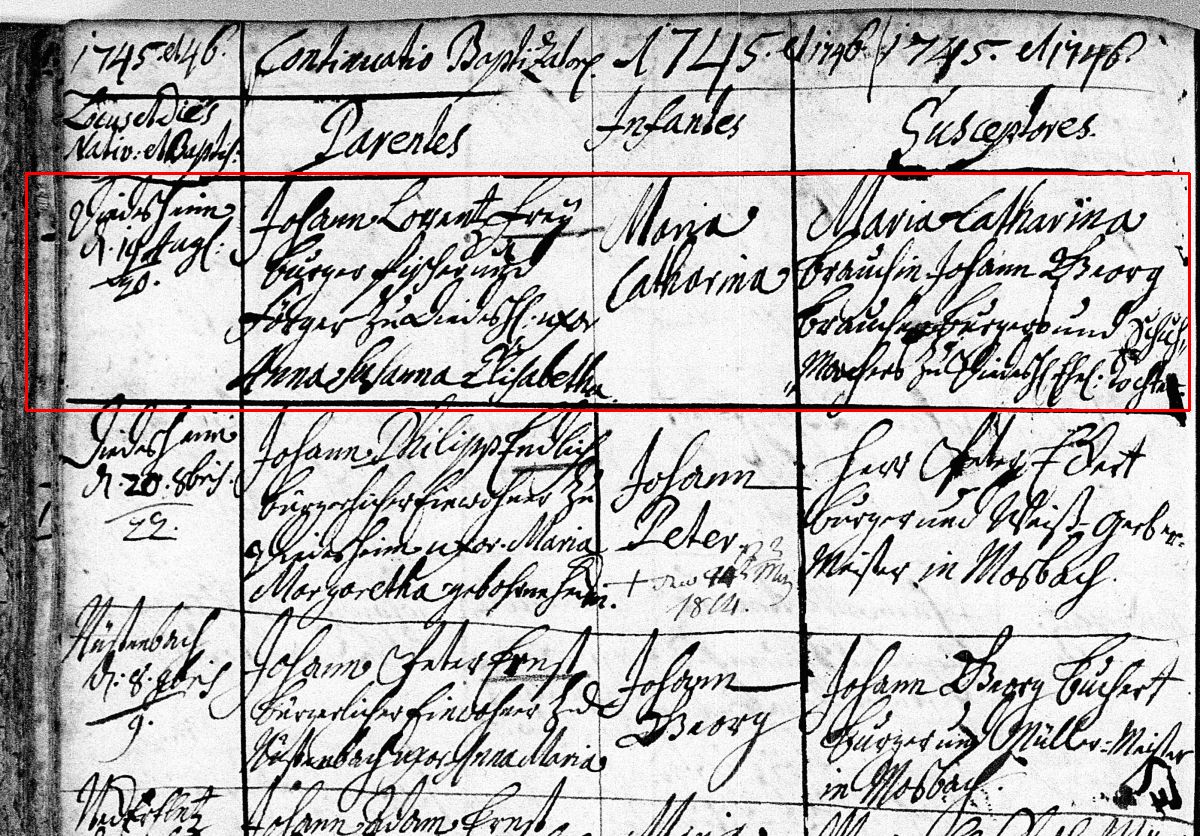 1745. et 46.
Continuatio Baptizator. A 1745. et 1746.
1745. et 1746.
Locus et Dies
Nativ: et Baptis:
Parentes
Infantes
Susceptores.
Diedesheim
d. 19 Aug:
20.
Johann Lorentz Frey
burger fischer und
Förger zu Diedesh: uxor
Anna Susanna Elisabetha.
Maria
Catharina
Maria Catharina
brauchin Johann Georg
brauchers burgers und Schuh-
Machers zu Diedesh. Ehel: Tochter.
Diedesheim
d. 20. 8bris.
22.
Johann Philipp Endlich
bürgerlicher Einwohner zu
Diedesheim uxor. Maria
Margaretha gebohrne
Johann
Peter
1814.
Herr Peter Ebert
burger und Weiß-gerber-
Meister in Mosbach.
Nüstenbach
d. 8. 9bris
9.
Johann Peter Ernst
bürgerlicher Einwohner zu
Nüstenbach uxor. Anna Maria
Johann
Georg
Johann Georg Buchert
burger und Müller-Meister
in Mosbach.
Johann Adam Ernst